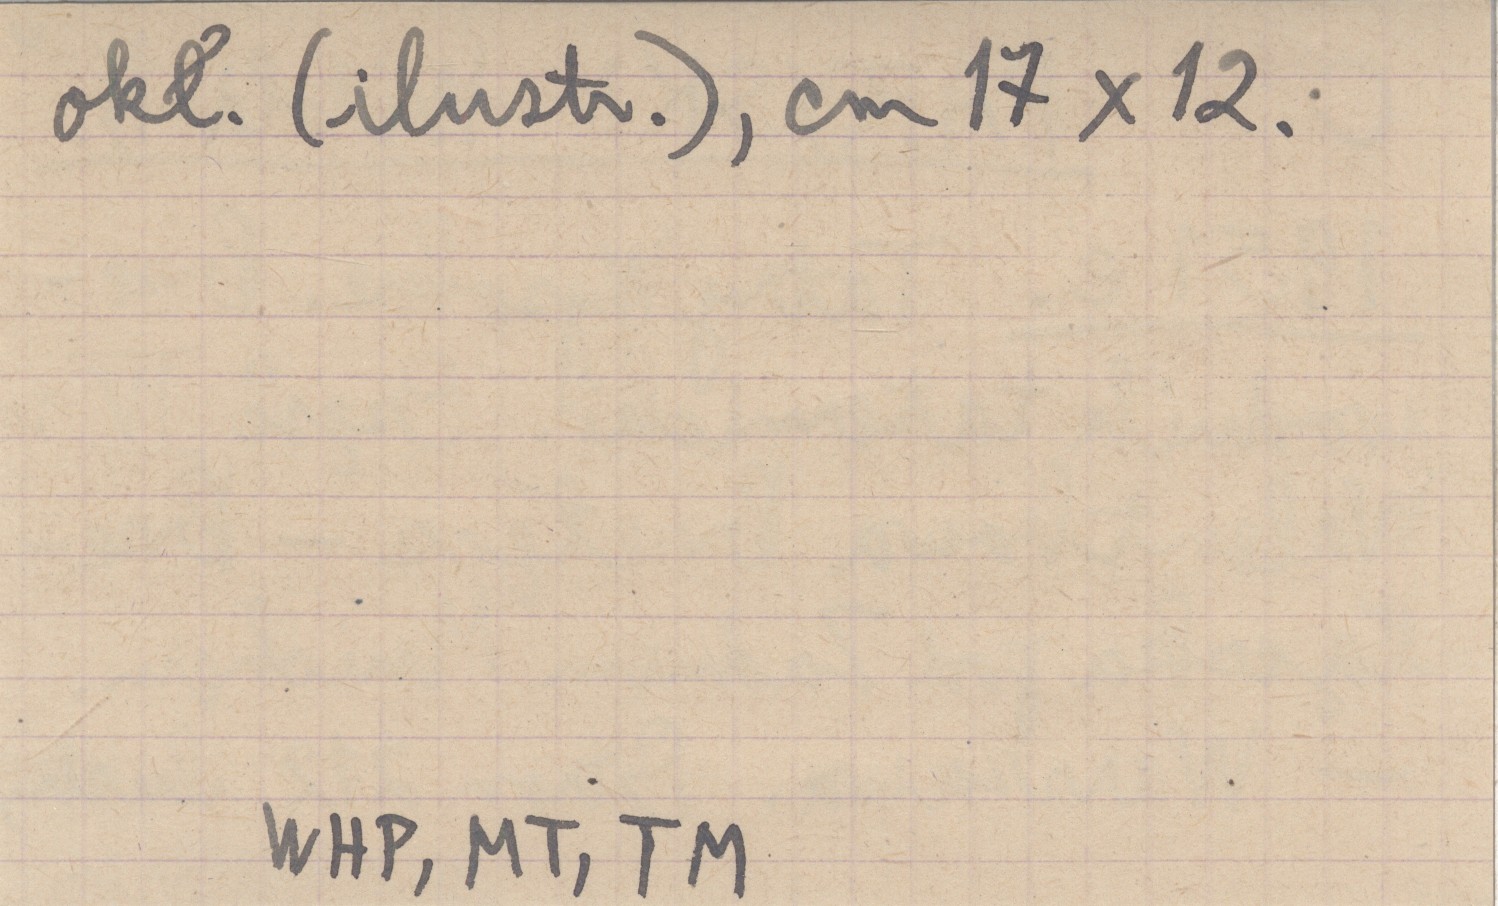 okł. (ilustr.), cm 17 x 12.
WHP, MT, TM